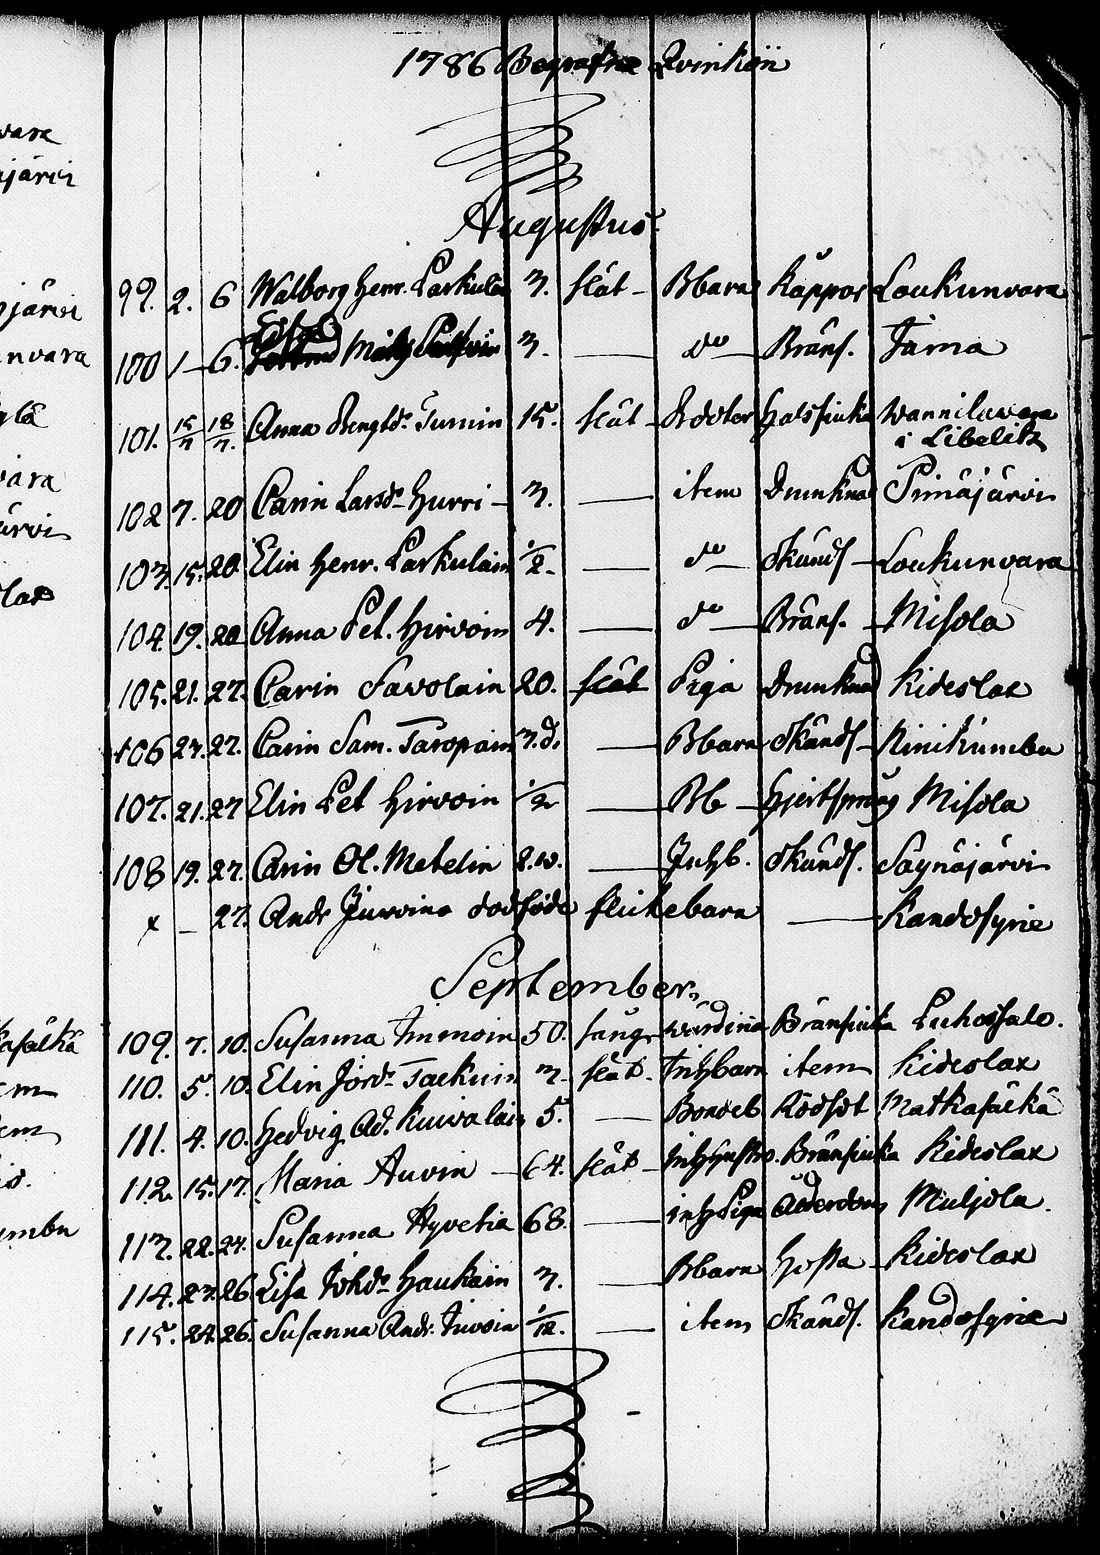 1786 Begrafne Qvinkön
Augustus.
99. 2. 6 Walborg Henr. Parkulai 3. slät - Bbarn Koppor Loukunvara
100 1 - 6. Mats 3. — do Bränf. Jama
101. 15/7 18/7. Anna Bengtsd. Turnin 15. slät - Dotter Halssiuka Wannilavara
i Libelitz
102 7. 20 Carin Larsd. Hurri - 3. — item Drunknad Pinäjärvi
103. 15. 20 Elin Henr. Parkulain 1/2. — do - Okändf - Loukunvara
104. 19. 20 Anna Pet. Hirvoin 4. — do Bränf. - Misola
105. 21. 27. Carin Savolain 20. slät Piga Drunknad Kideslax
106 23. 27. Carin Sam. Taropain 3.d. — Bbarn Okändf - Kinikumbu
107. 21. 27 Elin Pet Hirvoin 1/2 — Bb - Hjertsprång Misola
108 19. 27. Carin Ol. Matelin 2.w. — Inhb. Okändf. Saynäjärvi
x - 27. Andr Jurvins dödföde flickebarn — Kandosyrie
September.
109. 7. 10. Susanna Immoin 50. säng. wärdina Bränsiuka Puhossalo.
110. 5. 10. Elin Jörd. Taekuin 3. slät. Inhbarn item Kideslax
111. 4. 10. Hedvig Ad. Kuivalain 5. — Bondeb Rödsot Matkasälkä
112. 15. 17. Maria Auvin - 64. slät - Inhhustro. Bränsiuka Kideslax
113. 22. 24. Susanna Hyvetia 68. — inhPiga Ålderdom Muljola.
114. 23. 26. Lisa Johd. Haukain 3. — Bbarn Hosta Kideslax
115. 24. 26. Susanna Andr. Juvoin 1/12. — item Okändf. Kandosyrie